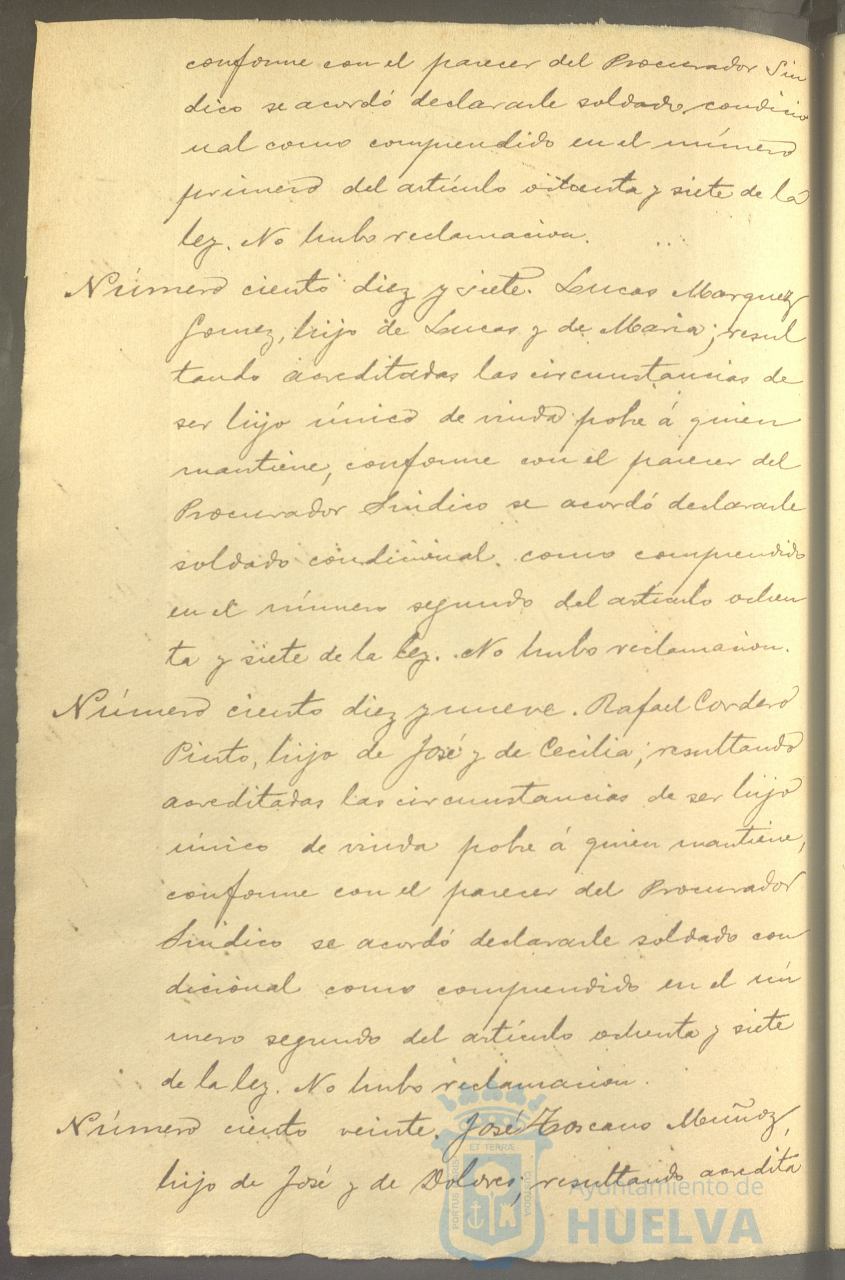 conforme con el parecer del Procurador Sin
dico se acordó declararle soldado condicio
nal como comprendido en el número
primero del artículo ochenta y siete de la
ley. No hubo reclamacion.
Número ciento diez y siete. Lucas Marquez
Gomez, hijo de Lucas y de Maria; resul
tando acreditadas las circunstancias de
ser hijo único de viuda pobre á quien
mantiene, conforme con el parecer del
Procurador Sindico se acordó declararle
soldado condicional como comprendido
en el número segundo del artículo ochen
ta y siete de la ley. No hubo reclamacion.
Número ciento diez y nueve. Rafael Cordero
Pinto, hijo de José y de Cecilia; resultando
acreditadas las circunstancias de ser hijo
único de viuda pobre á quien mantiene,
conforme con el parecer del Procurador
Sindico se acordó declararle soldado con
dicional como comprendido en el nú
mero segundo del artículo ochenta y siete
de la ley. No hubo reclamacion.
Número ciento veinte. José Toscano Muñoz,
hijo de José y de Dolores; resultando acredita
PORTUS MARIS
ET TERRÆ
CUSTODIA
Ayuntamiento de
HUELVA